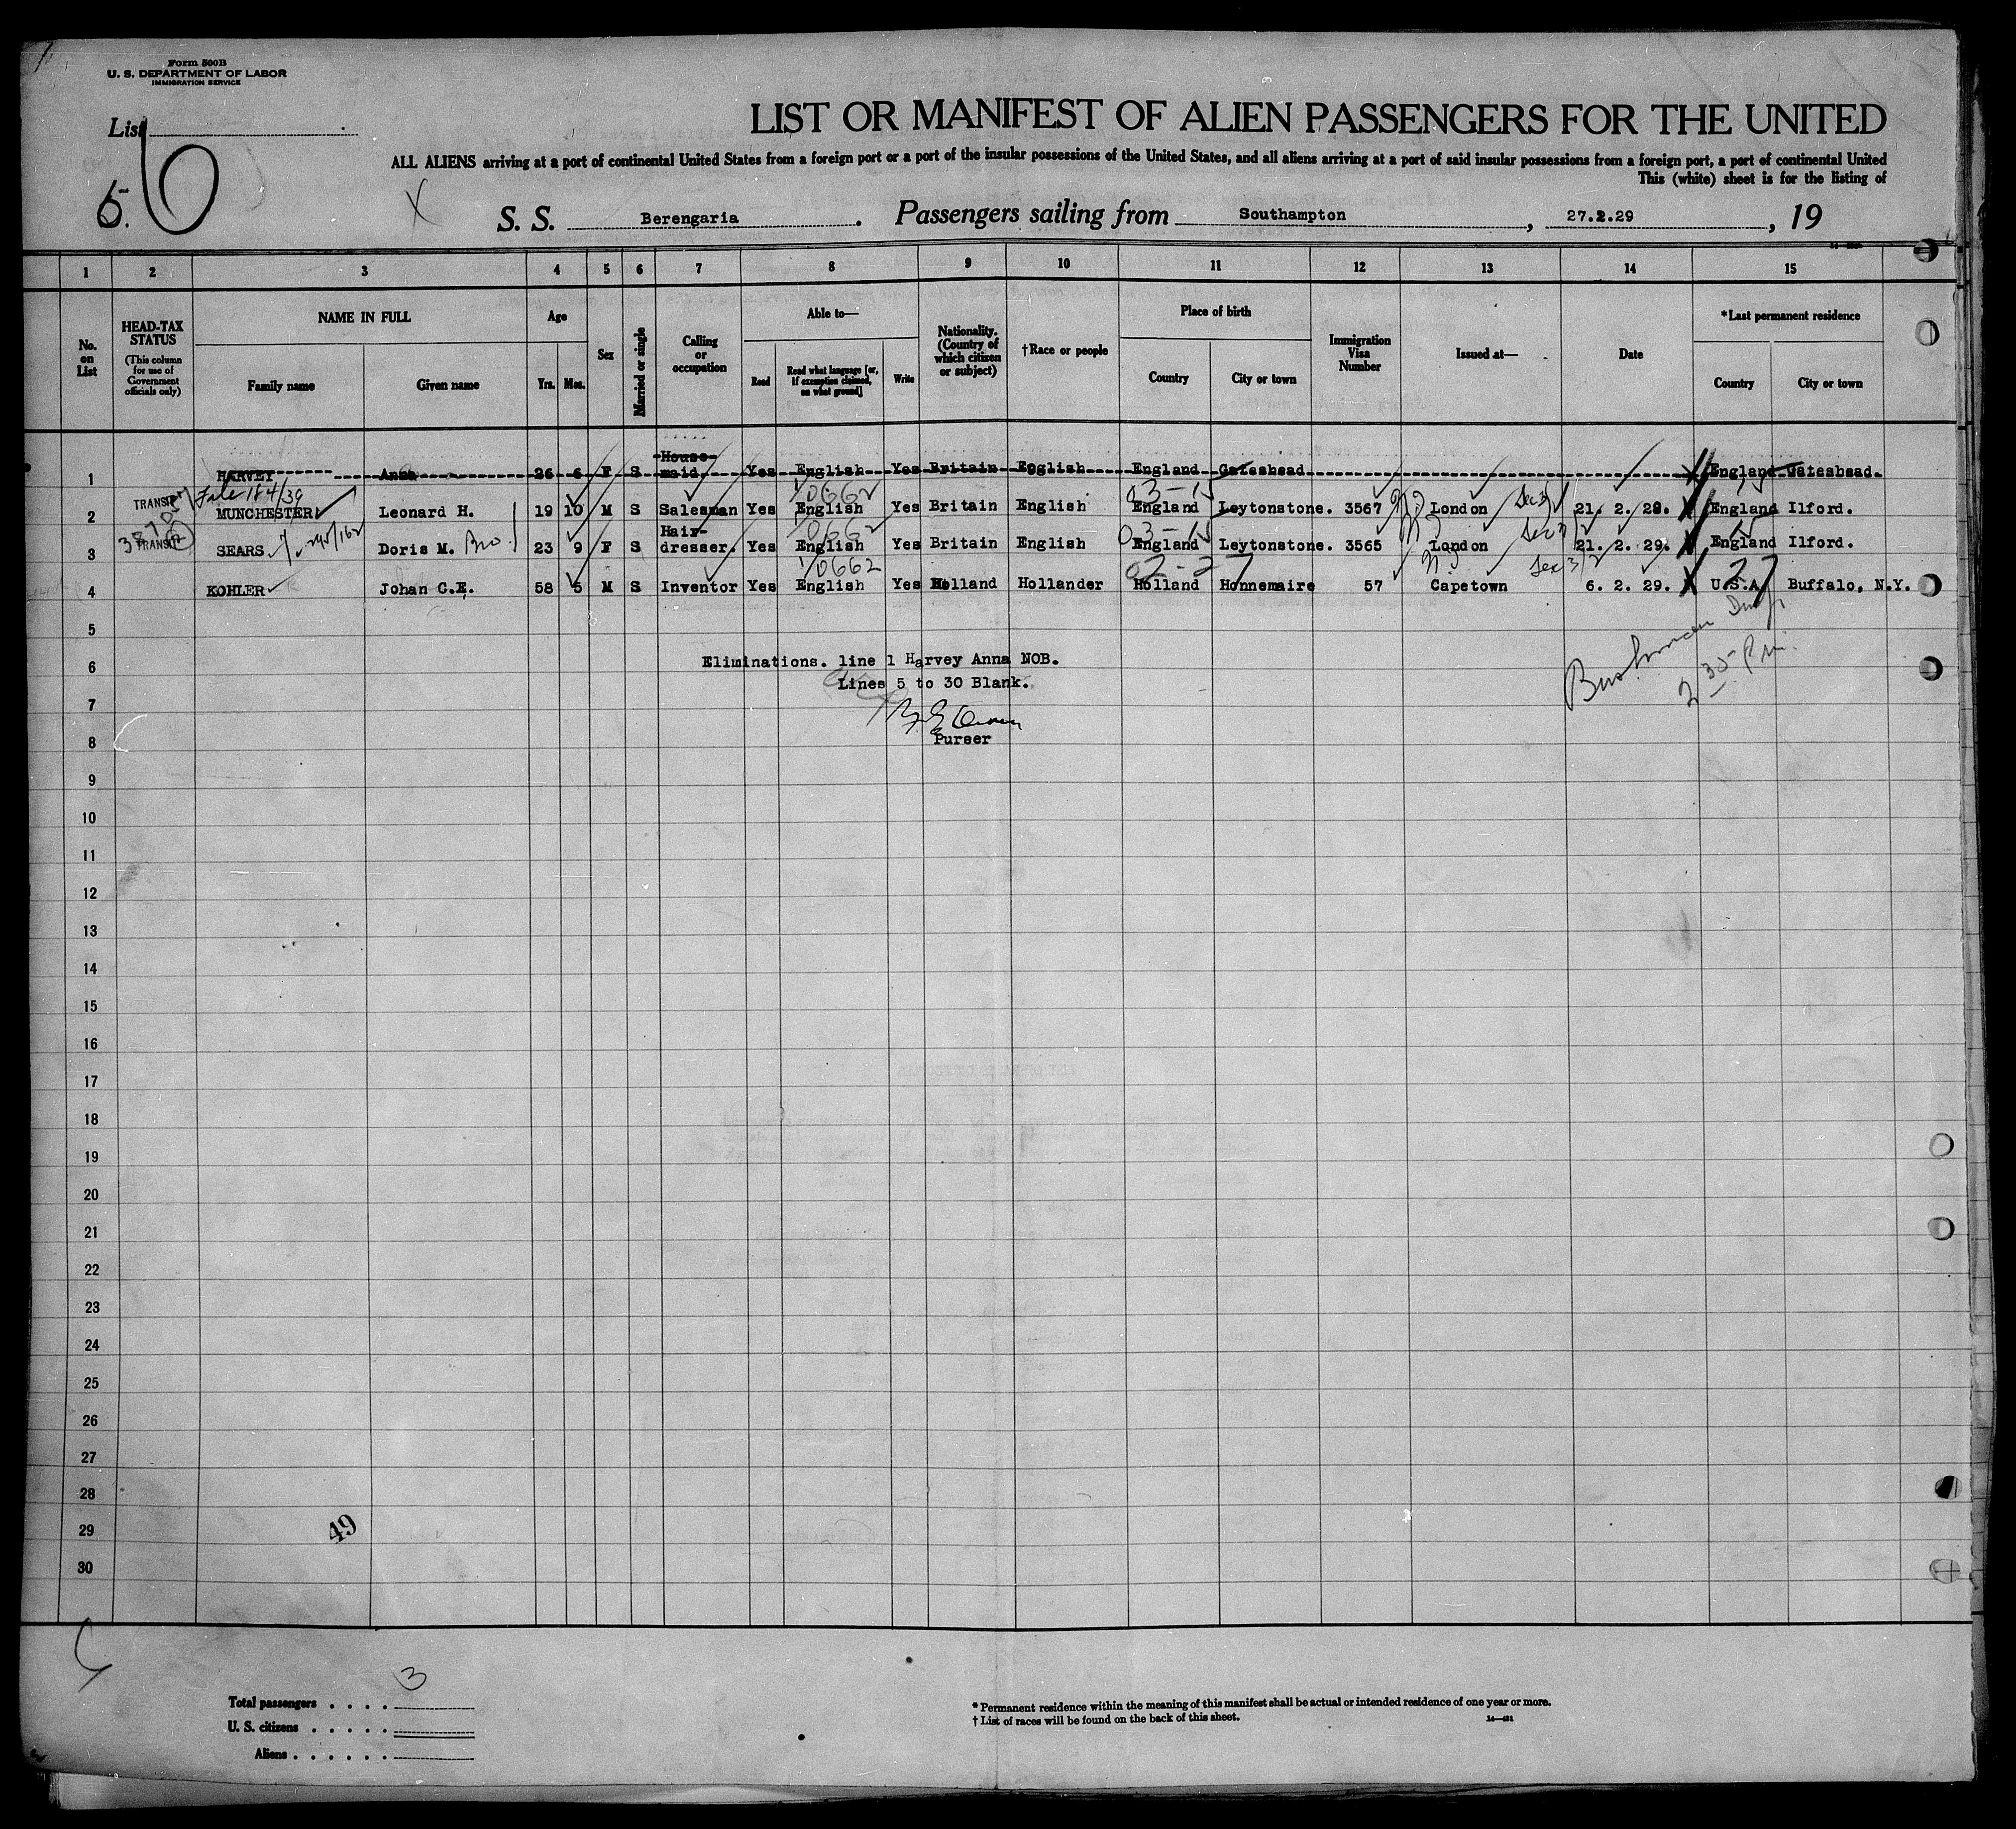 Form 500B
U. S. DEPARTMENT OF LABOR
IMMIGRATION SERVICE
List
6
5.
LIST OR MANIFEST OF ALIEN PASSENGERS FOR THE UNITED
ALL ALIENS arriving at a port of continental United States from a foreign port or a port of the insular possessions of the United States, and all aliens arriving at a port of said insular possessions from a foreign port, a port of continental United
This (white) sheet is for the listing of
X
S. S. Berengaria. Passengers sailing from Southampton, 27.2.29, 19
1 2 3 4 5 6 7 8 9 10 11 12 13 14 15
No. on List
HEAD-TAX STATUS
(This column for use of Government officials only)
NAME IN FULL
Family name
Given name
Age
Yrs. Mos.
Sex
Married or single
Calling or occupation
Able to—
Read
Read what language [or, if exemption claimed, on what ground]
Write
Nationality. (Country of which citizen or subject)
†Race or people
Place of birth
Country
City or town
Immigration Visa Number
Issued at—
Date
*Last permanent residence
Country
City or town
1 HARVEY Anna 26 6 F S House-maid Yes English Yes Britain English England Gateshead England Gateshead.
TRANSIT
10662
03-15
2 MUNCHESTER Leonard H. 19 10 M S Salesman Yes English Yes Britain English England Leytonstone. 3567 London 21. 2. 29. England Ilford.
TRANSIT
10662
03-15
15
3 SEARS Doris M. 23 9 F S Hair-dresser. Yes English Yes Britain English England Leytonstone. 3565 London 21. 2. 29. England Ilford.
10662
4 KOHLER Johan G.E. 58 5 M S Inventor Yes English Yes Holland Hollander Holland Honnemaire 57 Capetown 6. 2. 29. U.S.A. Buffalo, N.Y.
5
6 Eliminations. line 1 Harvey Anna NOB.
Lines 5 to 30 Blank.
7
8 Purser
9
10
11
12
13
14
15
16
17
18
19
20
21
22
23
24
25
26
27
28
29
30
49
3
Total passengers
U. S. citizens
Aliens
* Permanent residence within the meaning of this manifest shall be actual or intended residence of one year or more.
† List of races will be found on the back of this sheet.